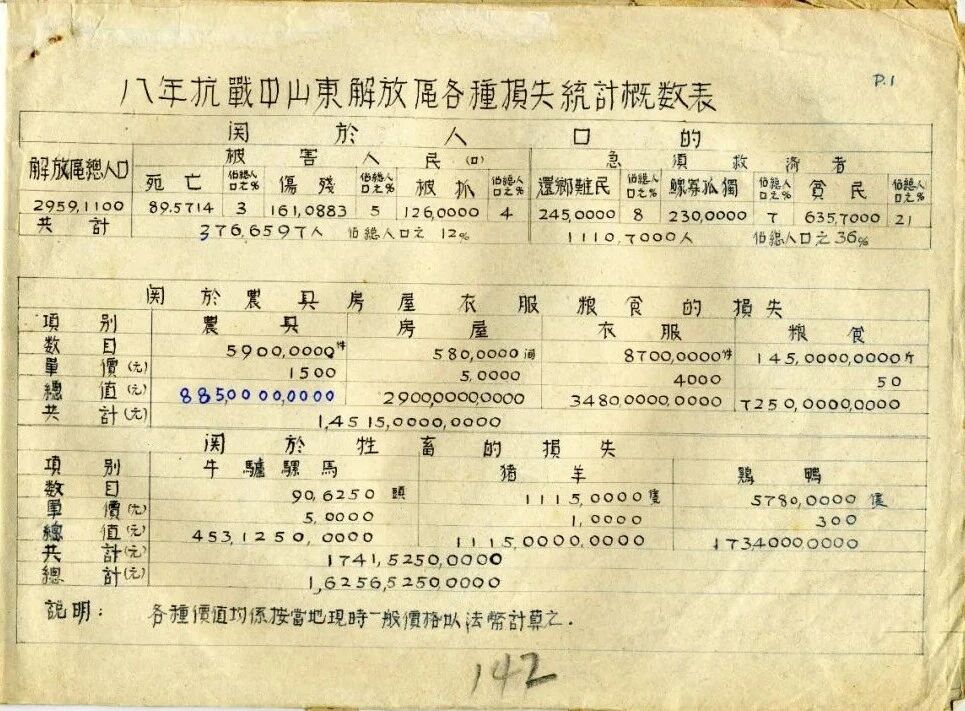 P.1
八年抗戰中山東解放區各種損失統計概数表
関於人口的
解放區總人口 被害人民(口) 急須救濟者
死亡 佔總人口之% 傷殘 佔總人口之% 被抓 佔總人口之% 還鄉難民 佔總人口之% 鰥寡孤獨 佔總人口之% 貧民 佔總人口之%
2959,1100 89.5714 3 161,0883 5 126,0000 4 245,0000 8 230,0000 7 635,7000 21
共計 376,6597人 佔總人口之12% 1110,7000人 佔總人口之36%
関於農具房屋衣服粮食的損失
項別 農具 房屋 衣服 粮食
数目 5900,0000件 580,0000间 8700,0000件 145,0000,0000斤
單價(元) 1500 5,0000 4000 50
總值(元) 8850000,0000 2900,0000,0000 3480,0000,0000 7250,0000,0000
共計(元) 1,4515,0000,0000
関於牲畜的損失
項別 牛驢騾馬 猪羊 鷄鴨
数目 90,6250頭 1115,0000隻 5780,0000隻
單價(元) 5,0000 1,0000 300
總值(元) 453,1250,0000 1115,0000,0000 173,4000,0000
共計(元) 1741,5250,0000
總計(元) 1,6256,5250,0000
說明: 各種價值均係按當地現時一般價格以法幣計算之.
142